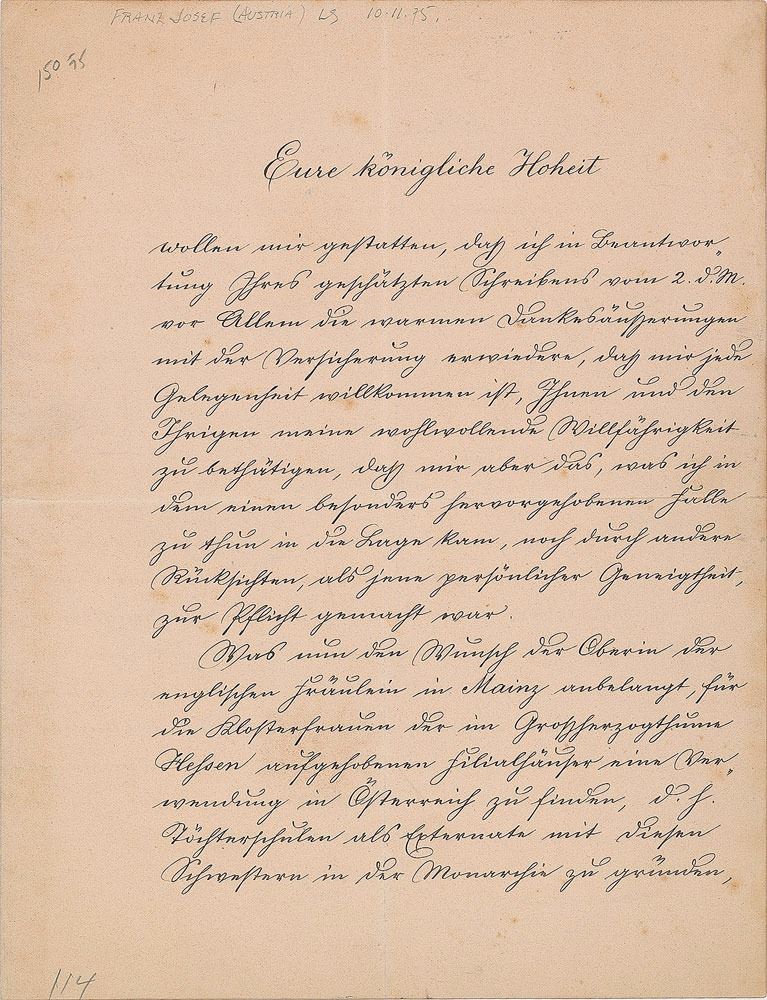 FRANZ JOSEF (AUSTRIA) LS 10.11.75.
150 75
Eure königliche Hoheit
wollen mir gestatten, daß ich in Beantwor„
tung Ihres geschätzten Schreibens vom 2. d. M.
vor Allem die warmen Dankesäußerungen
mit der Versicherung erwiedere, daß mir jede
Gelegenheit willkommen ist, Ihnen und den
Ihrigen meine wohlwollende Willfährigkeit
zu bethätigen, daß mir aber das, was ich in
dem einen besonders hervorgehobenen Falle
zu thun in die Lage kam, noch durch andere
Rücksichten, als jene persönlicher Geneigtheit,
zur Pflicht gemacht war.
Was nun den Wunsch der Oberin der
englischen Fräulein in Mainz anbelangt, für
die Klosterfrauen der im Großherzogthume
Hessen aufgehobenen Filialhäuser eine Ver„
wendung in Österreich zu finden, d. h.
Töchterschulen als Externate mit diesen
Schwestern in der Monarchie zu gründen,
114